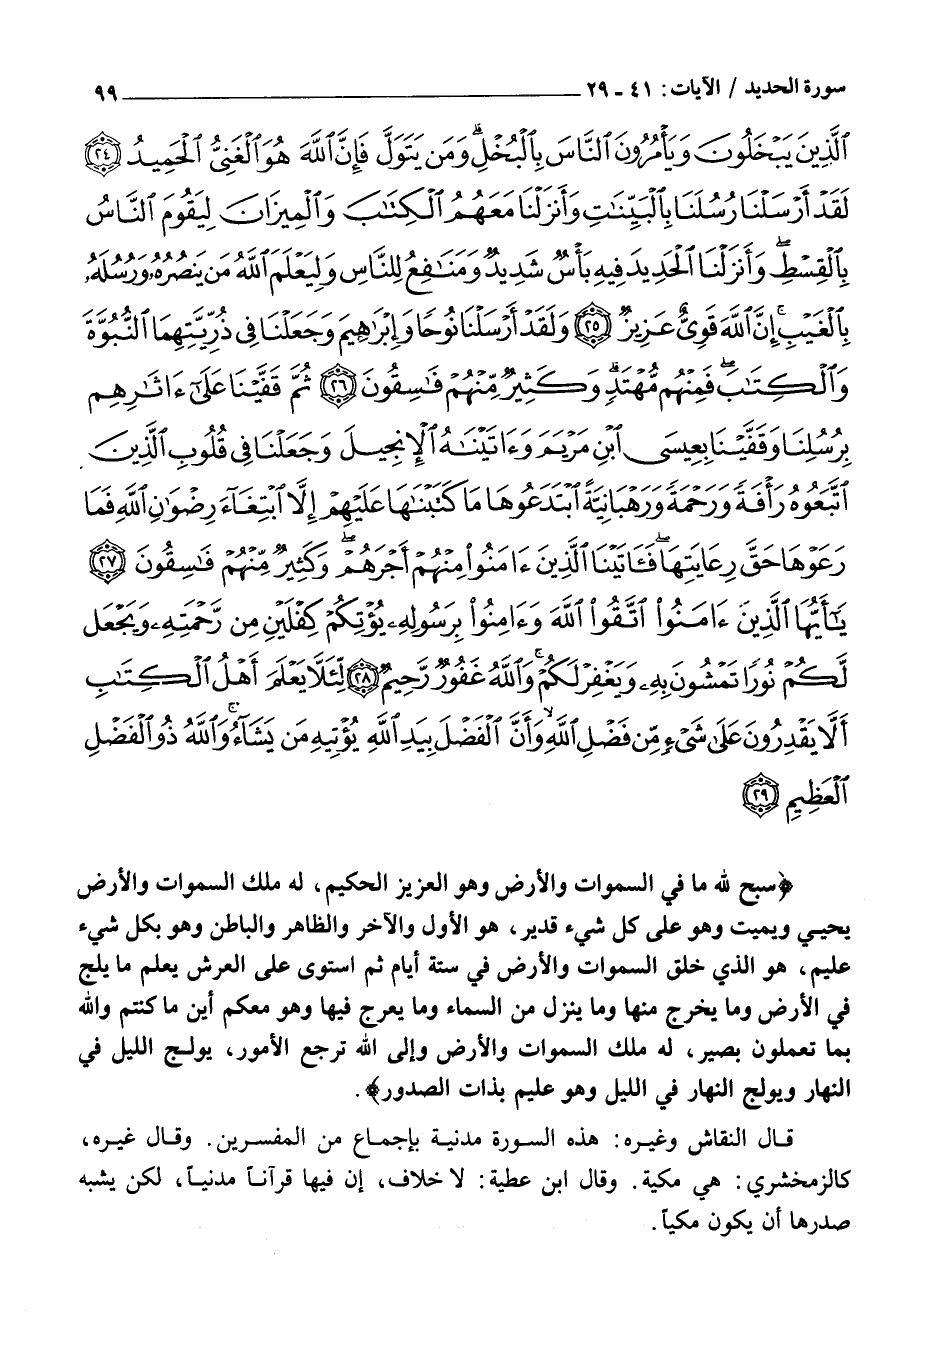 سورة الحديد / الآيات : ٤١ - ٢٩ ٩٩
ٱلَّذِينَ يَبْخَلُونَ وَيَأْمُرُونَ ٱلنَّاسَ بِٱلْبُخْلِ ۗ وَمَن يَتَوَلَّ فَإِنَّ ٱللَّهَ هُوَ ٱلْغَنِىُّ ٱلْحَمِيدُ ﴿٢٤﴾
لَقَدْ أَرْسَلْنَا رُسُلَنَا بِٱلْبَيِّنَٰتِ وَأَنزَلْنَا مَعَهُمُ ٱلْكِتَٰبَ وَٱلْمِيزَانَ لِيَقُومَ ٱلنَّاسُ
بِٱلْقِسْطِ ۖ وَأَنزَلْنَا ٱلْحَدِيدَ فِيهِ بَأْسٌ شَدِيدٌ وَمَنَٰفِعُ لِلنَّاسِ وَلِيَعْلَمَ ٱللَّهُ مَن يَنصُرُهُۥ وَرُسُلَهُۥ
بِٱلْغَيْبِ ۚ إِنَّ ٱللَّهَ قَوِىٌّ عَزِيزٌ ﴿٢٥﴾ وَلَقَدْ أَرْسَلْنَا نُوحًا وَإِبْرَٰهِيمَ وَجَعَلْنَا فِى ذُرِّيَّتِهِمَا ٱلنُّبُوَّةَ
وَٱلْكِتَٰبَ ۖ فَمِنْهُم مُّهْتَدٍ ۖ وَكَثِيرٌ مِّنْهُمْ فَٰسِقُونَ ﴿٢٦﴾ ثُمَّ قَفَّيْنَا عَلَىٰٓ ءَاثَٰرِهِم
بِرُسُلِنَا وَقَفَّيْنَا بِعِيسَى ٱبْنِ مَرْيَمَ وَءَاتَيْنَٰهُ ٱلْإِنجِيلَ وَجَعَلْنَا فِى قُلُوبِ ٱلَّذِينَ
ٱتَّبَعُوهُ رَأْفَةً وَرَحْمَةً وَرَهْبَانِيَّةً ٱبْتَدَعُوهَا مَا كَتَبْنَٰهَا عَلَيْهِمْ إِلَّا ٱبْتِغَآءَ رِضْوَٰنِ ٱللَّهِ فَمَا
رَعَوْهَا حَقَّ رِعَايَتِهَا ۖ فَـَٔاتَيْنَا ٱلَّذِينَ ءَامَنُوا۟ مِنْهُمْ أَجْرَهُمْ ۖ وَكَثِيرٌ مِّنْهُمْ فَٰسِقُونَ ﴿٢٧﴾
يَٰٓأَيُّهَا ٱلَّذِينَ ءَامَنُوا۟ ٱتَّقُوا۟ ٱللَّهَ وَءَامِنُوا۟ بِرَسُولِهِۦ يُؤْتِكُمْ كِفْلَيْنِ مِن رَّحْمَتِهِۦ وَيَجْعَل
لَّكُمْ نُورًا تَمْشُونَ بِهِۦ وَيَغْفِرْ لَكُمْ ۚ وَٱللَّهُ غَفُورٌ رَّحِيمٌ ﴿٢٨﴾ لِّئَلَّا يَعْلَمَ أَهْلُ ٱلْكِتَٰبِ
أَلَّا يَقْدِرُونَ عَلَىٰ شَىْءٍ مِّن فَضْلِ ٱللَّهِ ۙ وَأَنَّ ٱلْفَضْلَ بِيَدِ ٱللَّهِ يُؤْتِيهِ مَن يَشَآءُ ۚ وَٱللَّهُ ذُو ٱلْفَضْلِ
ٱلْعَظِيمِ ﴿٢٩﴾
﴿سبح لله ما في السموات والأرض وهو العزيز الحكيم، له ملك السموات والأرض
يحيي ويميت وهو على كل شيء قدير، هو الأول والآخر والظاهر والباطن وهو بكل شيء
عليم، هو الذي خلق السموات والأرض في ستة أيام ثم استوى على العرش يعلم ما يلج
في الأرض وما يخرج منها وما ينزل من السماء وما يعرج فيها وهو معكم أين ما كنتم والله
بما تعملون بصير، له ملك السموات والأرض وإلى الله ترجع الأمور، يولج الليل في
النهار ويولج النهار في الليل وهو عليم بذات الصدور﴾.
قال النقاش وغيره: هذه السورة مدنية بإجماع من المفسرين. وقال غيره،
كالزمخشري: هي مكية. وقال ابن عطية: لا خلاف، إن فيها قرآناً مدنياً، لكن يشبه
صدرها أن يكون مكياً.